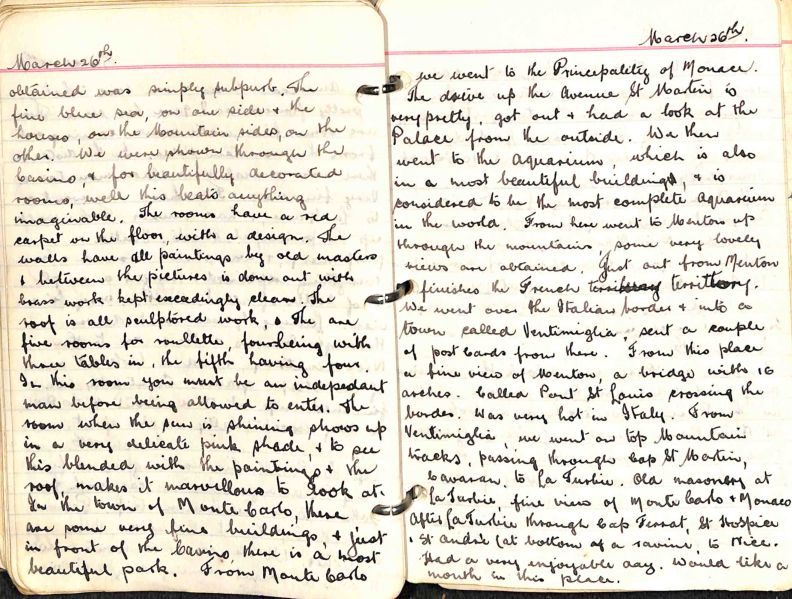 March 26th.
obtained was simply subpurb. The
fine blue sea, on one side & the
houses, on the Mountain sides, on the
other. We were shown through the
Casino, & for beautifully decorated
rooms, well this beats anything
imaginable. The rooms have a red
carpet on the floor, with a design. The
walls have all paintings by old masters
& between the pictures is done out with
brass work kept exceedingly clean. The
roof is all sculptored work, The are
five rooms for roullette, four being with
three tables in, the fifth having four.
In this room you must be an independant
man before being allowed to enter. The
room when the sun is shining shows up
in a very delicate pink shade, & to see
this blended with the paintings & the
roof, makes it marvellous to look at.
In the town of Monte Carlo, there
are some very fine buildings, & just
in front of the Casino there is a most
beautiful park. From Monte Carlo
March 26th.
we went to the Principality of Monaco.
The drive up the Avenue St Martin is
very pretty, got out & had a look at the
Palace from the outside. We then
went to the Aquarium, which is also
in a most beautiful building, & is
considered to be the most complete Aquarium
in the world. From here went to Menton up
through the mountains, some very lovely
views are obtained. Just out from Menton
finishes the French territory.
We went over the Italian border & into a
town called Ventimiglia, sent a couple
of post cards from there. From this place
a fine view of Menton, a bridge with 16
arches. Called Pont St Louis crossing the
border. Was very hot in Italy. From
Ventimiglia, we went on top Mountain
tracks, passing through Cap St Martin,
to La Turbie. Old masonry at
La Turbie, fine view of Monte Carlo & Monaco
After La Turbie through Cap Ferrat, St Hospice
& St André (at bottom of a ravine, to Nice.
Had a very enjoyable day. Would like a
month in this place.